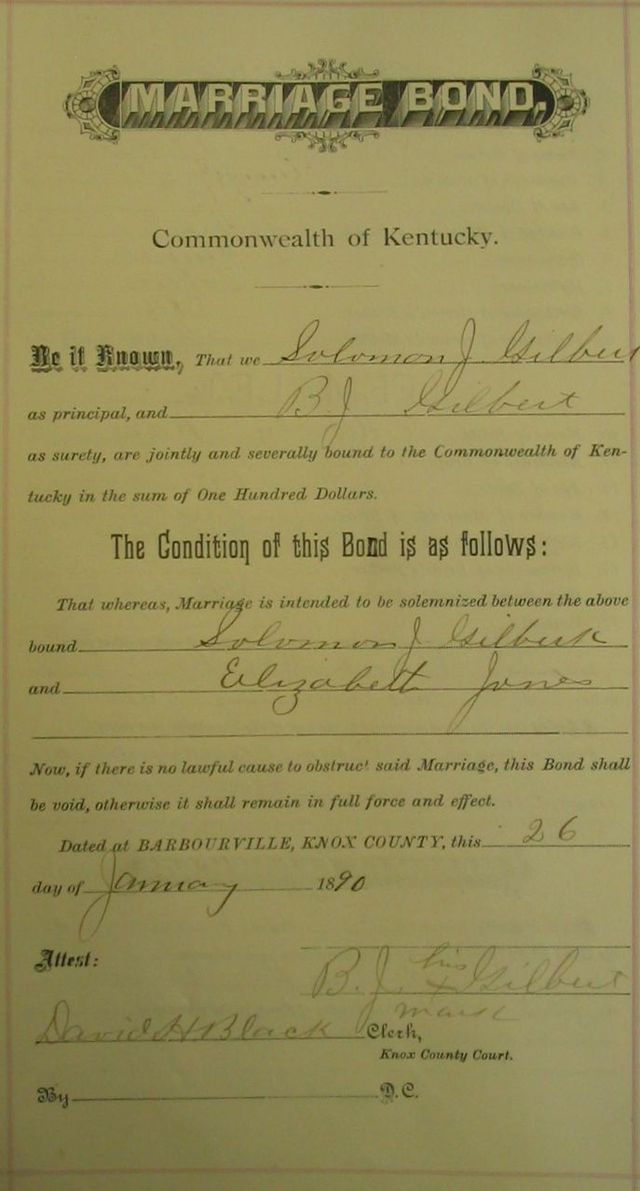 MARRIAGE BOND.
Commonwealth of Kentucky.
Be it Known, That we Solomon J Gilbert
as principal, and B J Gilbert
as surety, are jointly and severally bound to the Commonwealth of Ken-
tucky in the sum of One Hundred Dollars.
The Condition of this Bond is as follows:
That whereas, Marriage is intended to be solemnized between the above
bound Solomon J Gilbert
and Elizabett Jones
Now, if there is no lawful cause to obstruct said Marriage, this Bond shall
be void, otherwise it shall remain in full force and effect.
Dated at BARBOURVILLE, KNOX COUNTY, this 26
day of January 1890
Attest:
his
B. J. x Gilbert
mark
David H Black Clerk,
Knox County Court.
By D. C.